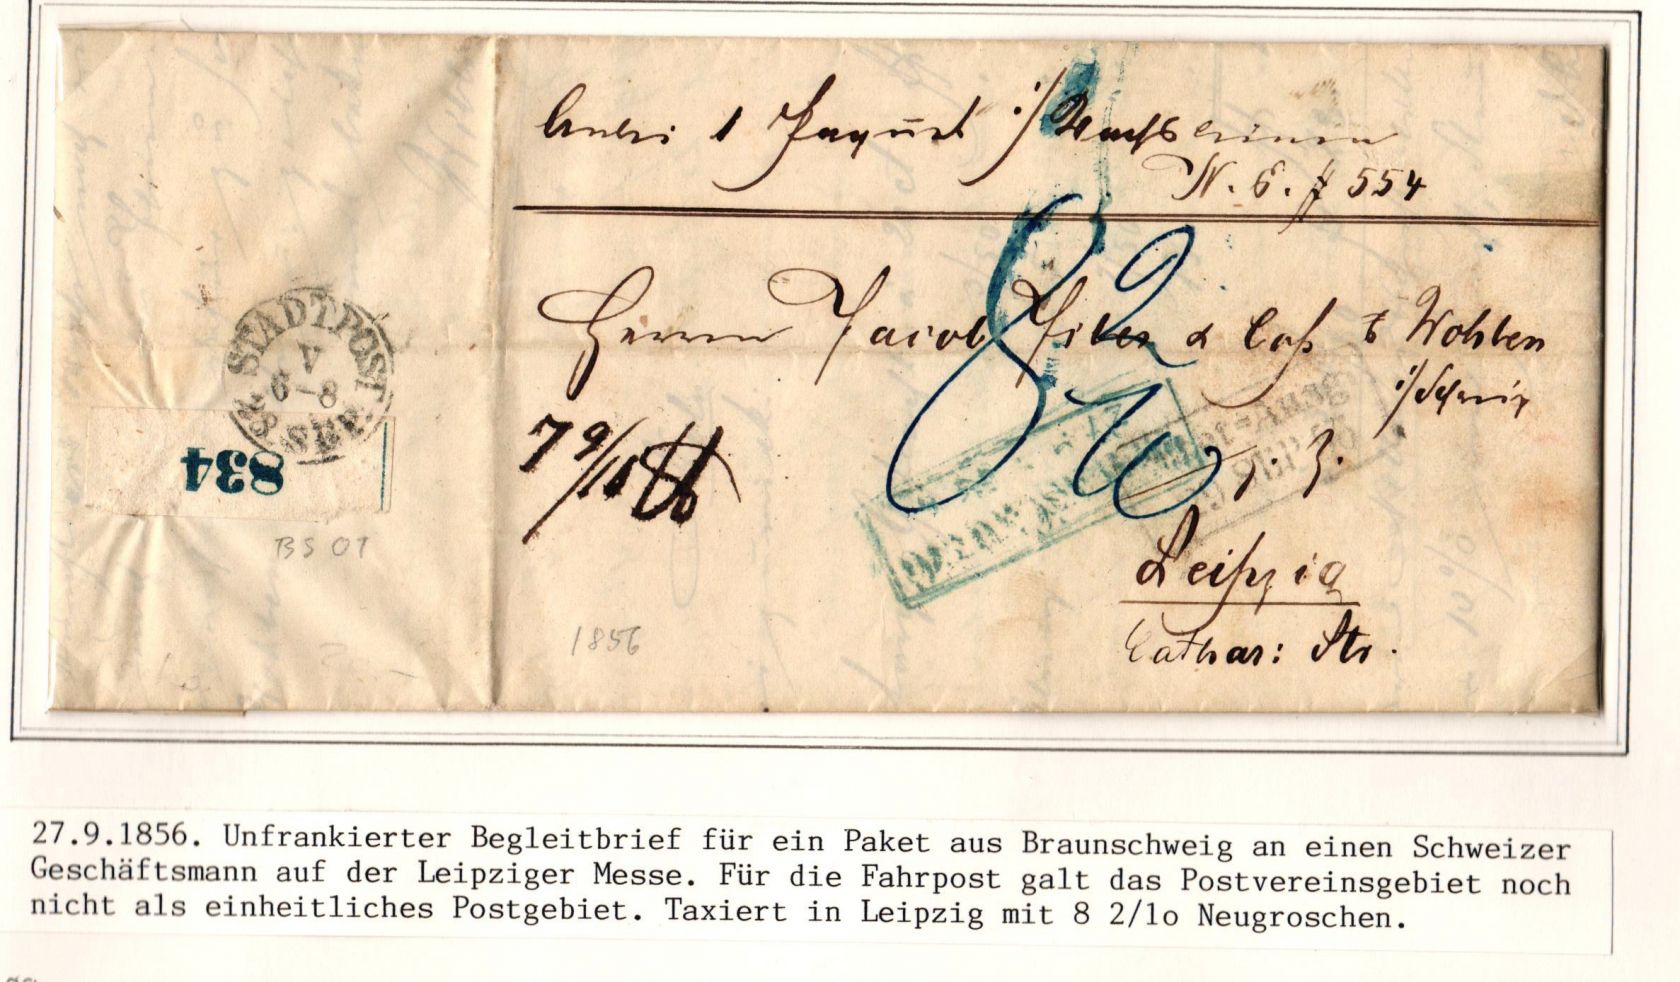 1 Paquet
N. 6. 554
Herrn Jacob & Co à Wohlen
7 9/10 ℔
8 2/10
p. t.
Leipzig
Cathar: Str.
STADTPOST
V
6-8
28 SEP.
834
BS 01
1856
27.9.1856. Unfrankierter Begleitbrief für ein Paket aus Braunschweig an einen Schweizer
Geschäftsmann auf der Leipziger Messe. Für die Fahrpost galt das Postvereinsgebiet noch
nicht als einheitliches Postgebiet. Taxiert in Leipzig mit 8 2/1o Neugroschen.